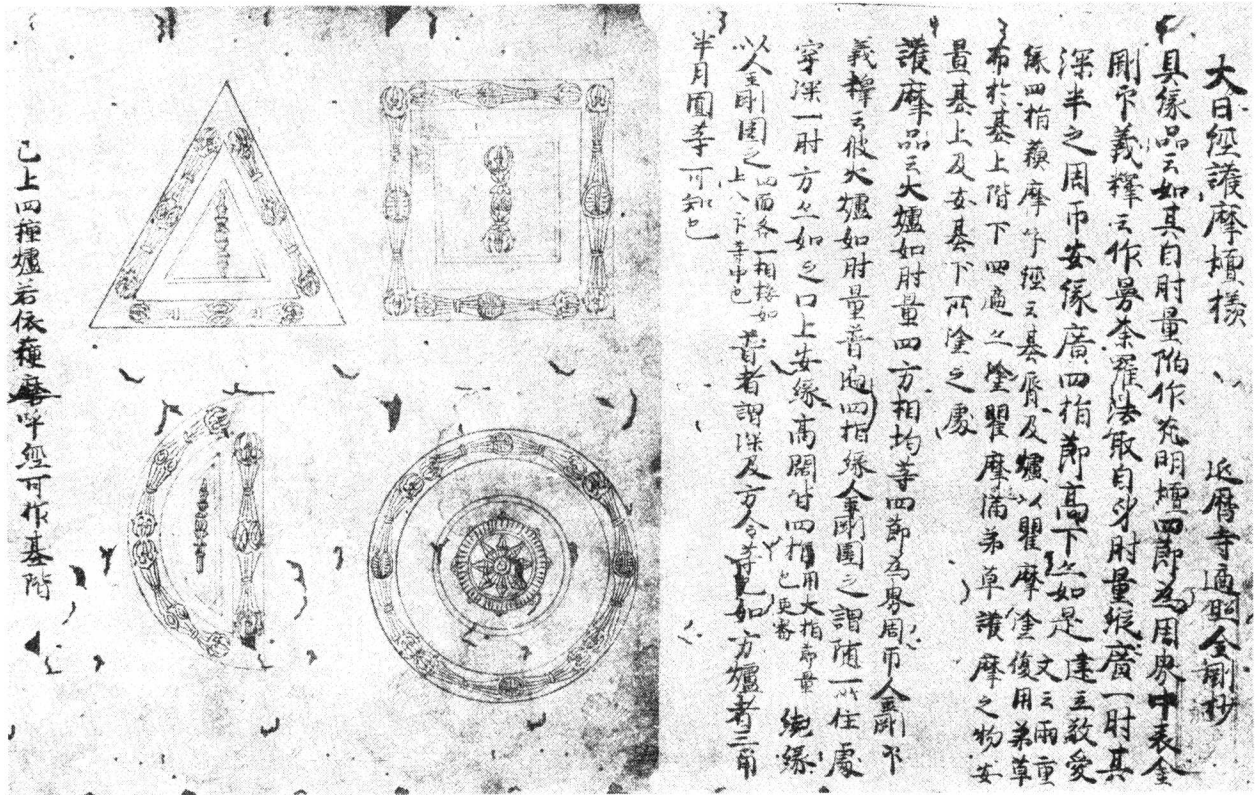 大日經護摩壇樣 延曆寺遍照金剛抄
具緣品云如其自肘量陷作光明壇四節為周界中表金
剛印義釋云作曼荼羅法取自身肘量縱廣一肘其
深半之周帀安緣廣四指節高下亦如是 建立敬愛
緣四指蘓摩呼經云基脣及爐以瞿摩塗復用弟草 文云兩重
布於基上階下四邊亦塗瞿摩滿弟草護摩之物安
置基上及安基下所塗之處
護摩品云火爐如肘量四方相均等四節為界周帀金剛印
義釋云彼火爐如肘量普遍四指緣金剛圍之謂隨一以住處
穿深一肘方亦如之口上安緣高闊廿四指 用大指節量 繞緣
以金剛圍之 四面各一相接如 普者謂深及方令等也如方爐者三角
半月圓等可知也
已上四種爐若依蘓磨呼經可作基階